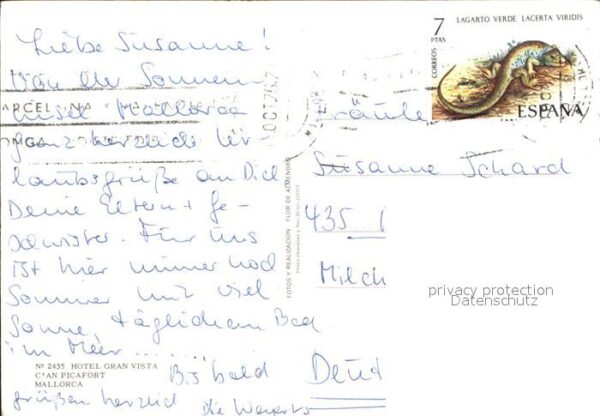 Liebe Susanne!
Von der Sonnen
insel Mallorca
ganz herzliche Ur-
laubsgrüße an Dich
Deine Eltern + Ge-
schwister. Für uns
ist hier immer noch
Sommer mit viel
Sonne, täglichem Bad
im Meer...
Bis bald
grüßen herzlich die
Nº 2435 HOTEL GRAN VISTA
C'AN PICAFORT
MALLORCA
FOTOS Y REALIZACION FLOR DE ALMENDRO
7
PTAS
CORREOS
LAGARTO VERDE. LACERTA VIRIDIS
ESPAÑA
Fräulein
Susanne Schard
435 1
Milch
privacy protection
Datenschutz
Deut